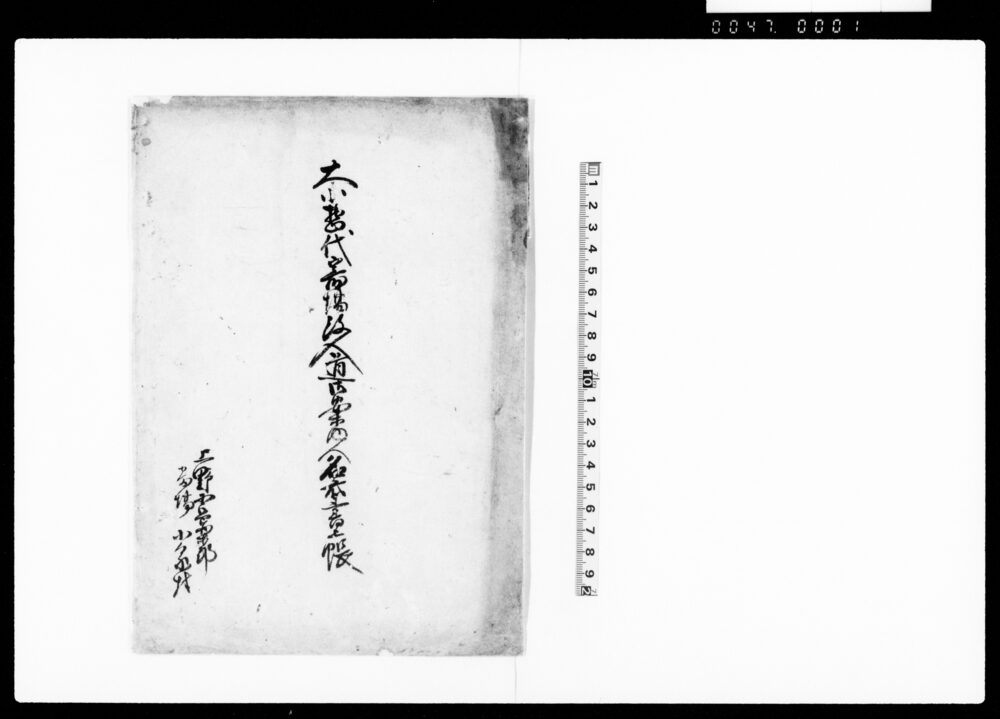 0047. 0001
大小惣代寄場役人道案内人名前書上帳
上野国邑楽郡
寄場 小泉村
1 2 3 4 5 6 7 8 9 10 1 2 3 4 5 6 7 8 9 2